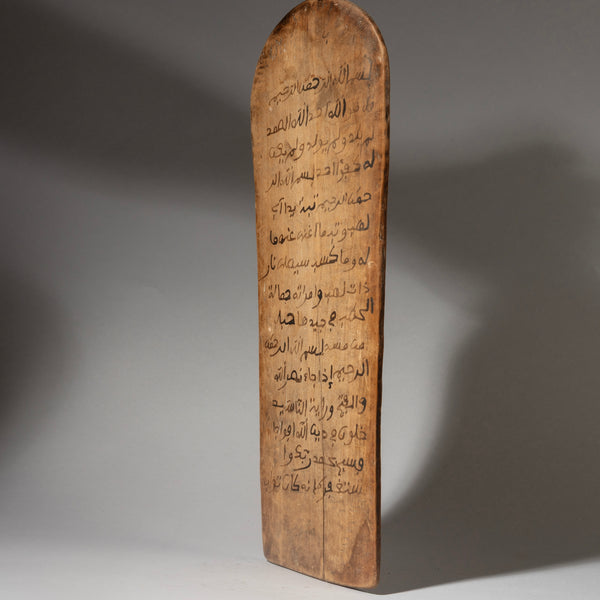 ب
بسم الله الرحمن الرحيم
قل هو الله احد الله الصمد
لم يلد ولم يولد ولم يكن
له كفوا احد بسم الله الر
حمن الرحيم تبت يدا ابي
لهب وتب ما اغنى عنه ما
له وما كسب سيصلى نار
ذات لهب وامراته حمالة
الحطب في جيدها حبل
من مسد بسم الله الرحمن
الرحيم إذا جاء نصر الله
والفتح ورايت الناس يد
خلون في دين الله افواجا
فسبح بحمد ربك وا
ستغفره انه كان توابا